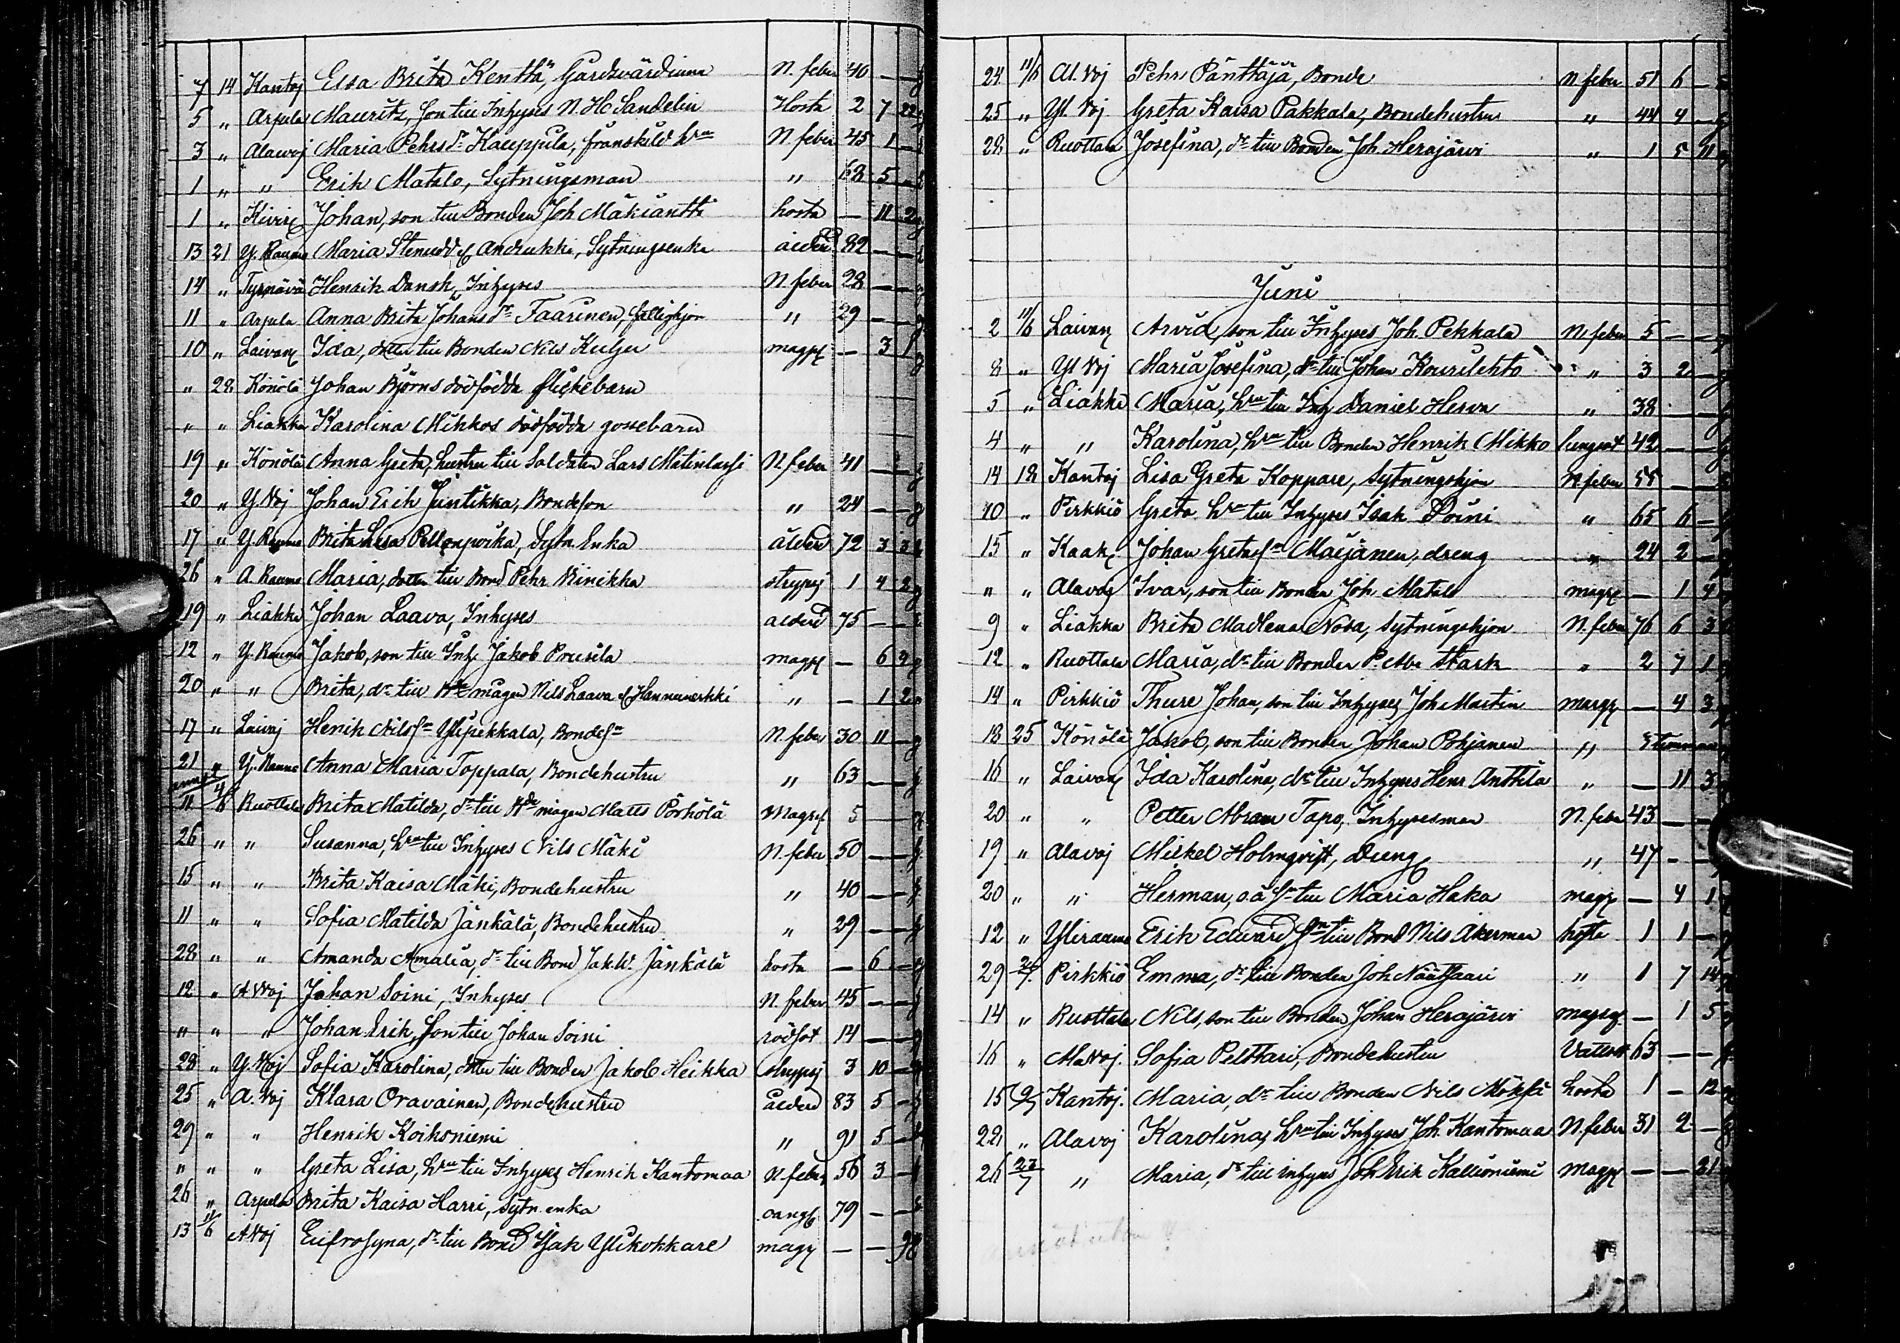 7 14 Kantoj Elsa Brita Kenttä, Gårdsvärdinna N. feber 40 —
5 " Arpela Mauritz, son till Inhyses N. H. Sandelin Hosta 2 7 22
3 " Alavoj Maria Pehrsdr Kauppila, frånskild hru N feber 45 1 —
1 " " Erik Matalo, Sytningsman " 68 5 —
1 " Kivir Johan, son till Bonden Joh Mäkiäntti hosta — 11 2
13 21 Y. Raumo Maria Stenudd Andrukki, Sytningsenka ålder 82 — —
14 " Tyrnävä Henrik Dansk, Inhyses N. feber 28 — —
11 " Arpela Anna Brita Johansdr Taarinen, fattighjon " 29 — —
10 " Laivaj Ida, dotter till Bonden Nils Kulju magpl — 3 1
" 28 Könölä Johan Björns dödfödda flickebarn
" " Liakka Karolina Mikkos dödfödda gossebarn
19 " Könölä Anna Greta, hustru till Soldaten Lars Matinlassi N feber 41 — —
20 " Y. Voj Johan Erik Juntikka, Bondeson " 24 — —
17 " Y. Raumo Brita Lisa Pellonpoika, Sytn Enka ålder 72 3 3
26 " A. Raumo Maria, dotter till Bond Pehr Vinikka strypsj 1 4 2
19 " Liakka Johan Laava, Inhyses ålderd 75 — —
12 " Y. Raumo Jakob, son till Inh Jakob Prusila magpl — 6 3
20 " " Brita, dr till Bde mågen Nils Laava Hannunerkki " — 1 2
17 " Laivaj Henrik Nilsson Ylipekkala, Bondeson N. feber 30 11 —
21 " Y. Raumo Anna Maria Toppala, Bondehustru " 63 — —
11 4/6 Ruottala Brita Matilda, dr till Bde mågen Matts Pörhölä Magpl 5 — —
26 " " Susanna, hru till Inhyses Nils Mäki N. feber 50 — —
15 " " Brita Kaisa Mäki, Bondehustru " 40 — —
11 " " Sofia Matilda Jänkälä, Bondehustru " 29 — —
28 " " Amanda Amalia, dr till Bond Jak. W. Jänkälä hosta — 6 —
12 " A Voj Johan Soini, Inhyses N. feber 45 — —
" " " Johan Erik, son till Johan Soini rödsot 14 — —
28 " Y. Voj Sofia Karolina, dotter till Bonden Jakob Heikka strypsj 3 10 —
25 " A. Voj Klara Oravainen, Bondehustru ålderd 83 5 —
29 " " Henrik Koikoniemi " 91 5 —
" " " Greta Lisa, hru till Inhyses Henrik Kantomaa N feber 56 3 —
26 " Arpela Brita Kaisa Harri, Sytn. enka 79 — —
13 11/6 A Voj Eufrosyna, dr till Bond Isak Ylikokkare magpl — —
24 11/6 Al. Voj Pehr Pänttäjä, Bonde N. feber 51 6 —
25 " Yl Voj Greta Kaisa Pakkala, Bondehustru " 44 4 —
28 " Ruottala Josefina, dr till Bonden Joh. Herajärvi " 1 5 11
Juni
2 11/6 Laivaj Arvid, son till Inhyses Joh. Pekkala N. feber 5 — —
8 " Yl Voj Maria Josefina, dr till Johan Kourilehto " 3 2 —
5 " Liakka Maria, hru till Inh Daniel Herva " 38 — —
4 " " Karolina, hru till Bonden Henrik Mikko lungsot 42 — —
14 18 Kantoj Lisa Greta Koppare, sytningshjon N. feber 55 — —
10 " Pirkkiö Greta hru till Inhyses Isak Soini " 65 6 —
15 " Kaak Johan Gretason Maijanen, dreng " 24 2 —
" " Alavoj Ivar, son till Bonden Joh Matalo magpl — 1 4
9 " Liakka Brita Madlena Nosa, Sytningshjon N. feber 76 6 3
12 " Ruottala Maria, dr till Bonden P. Abr Stark " 2 7 1
14 " Pirkkiö Thure Johan, son till Inhyses Joh. Martin magpl — 4 3
18 25 Könölä Jakob, son till Bonden Johan Pohjanen " 3 timmar
16 " Laivaj Ida Karolina, dr till Inhyses Henr Anttila " — 11 3
20 " " Petter Abram Tapo, Inhysesman N. feber 43 — —
19 " Alavoj Mickel Holmqvist, Dreng " 47 — —
20 " " Herman, o.ä. sn till Maria Haka magpl — 4 1
12 " Yliraumo Erik Edward sn till Bond Nils Åkerman hosta 1 1 —
29 2/7 Pirkkiö Emma, dr till Bonden Joh. Näätsaari " 1 7 14
14 " Ruottala Nils, son till Bonden Johan Herajärvi magpl — 1 5
16 " Alavoj. Sofia Peltsari, Bondehustru Vattsot 63 — —
15 9/7 Kantoj. Maria, dr till Bonden Nils Möksä hosta 1 — 12
22 " Alavoj Karolina, hru till Inhyses Joh. Kantomaa N. feber 31 2 —
26 23/7 " Maria, dr till inhyses Joh Erik Kallioniemi magpl — — 21